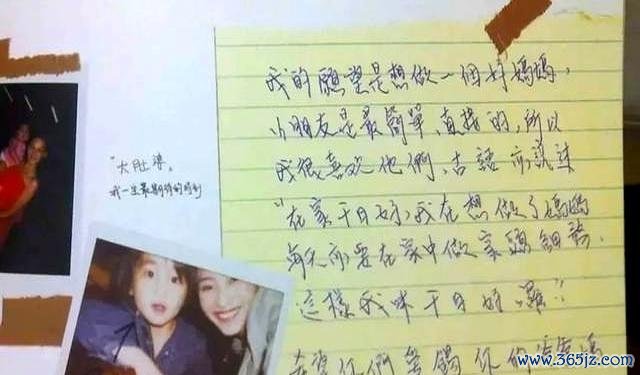 我的願望是想做一個好媽媽,
小朋友是最簡單、直接的,所以
我很喜歡他們、古語亦說過
"在家千日好,我在想做了媽媽
每天亦要在家中做家頭細務、
這樣我咪千日好囉!"
希望你們
"大肚婆,
我一生最期待的時刻
www.365jz.com